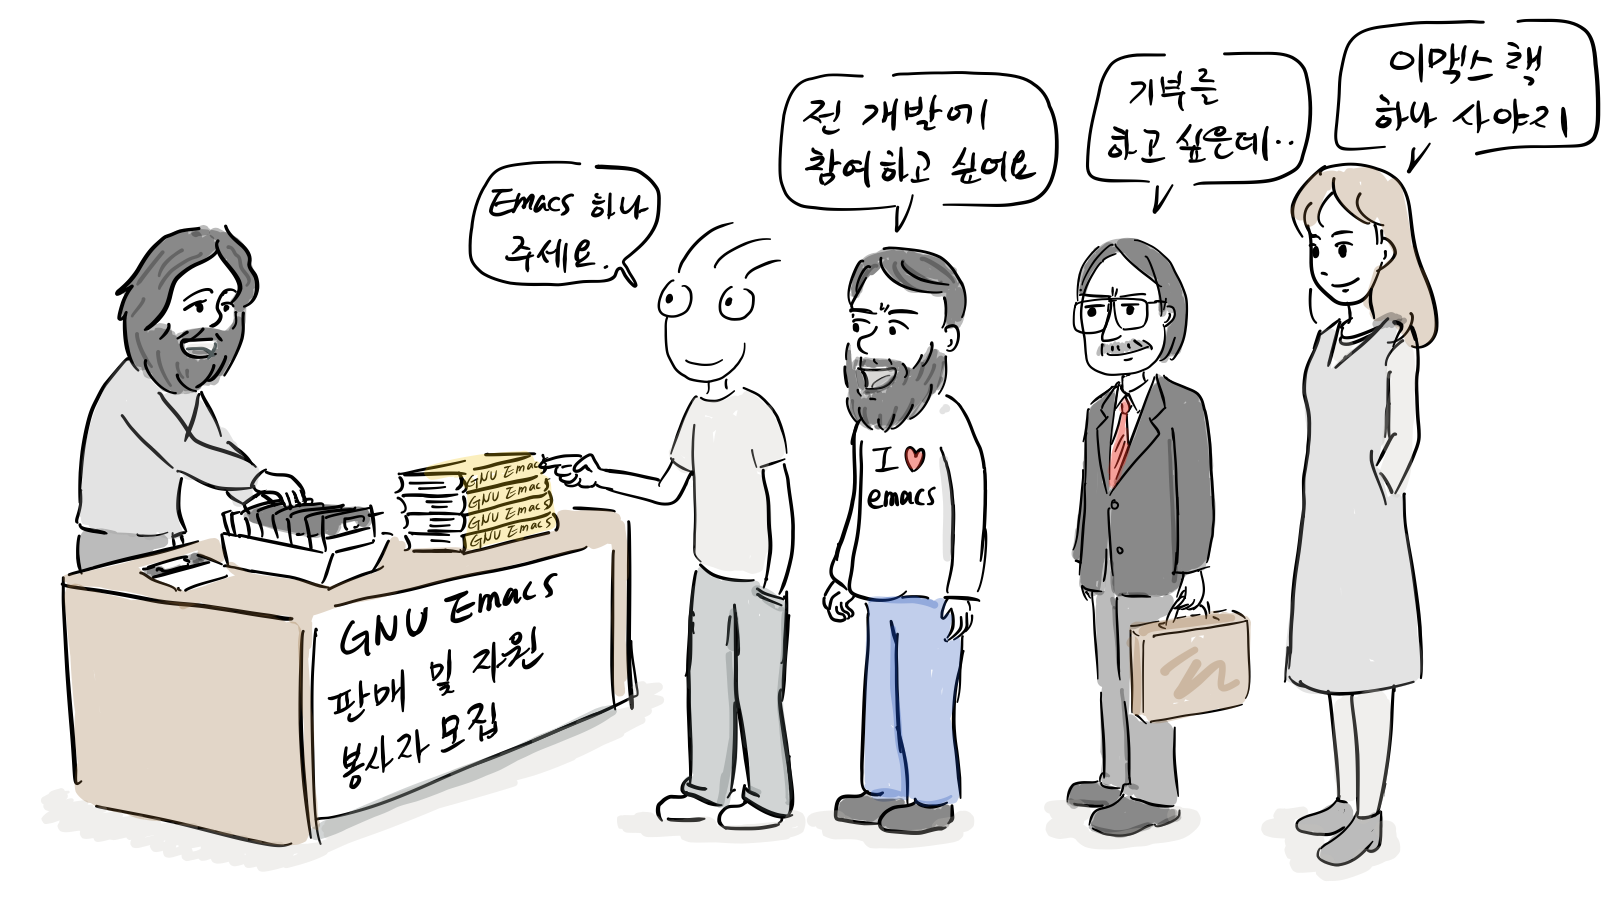 Emacs 하나
주세요.
전 개발에
참여하고 싶어요
기부를
하고 싶은데..
이맥스 책
하나 사야지
GNU Emacs
GNU Emacs
GNU Emacs
GNU Emacs
I ♥
emacs
GNU Emacs
판매 및 자원
봉사자 모집